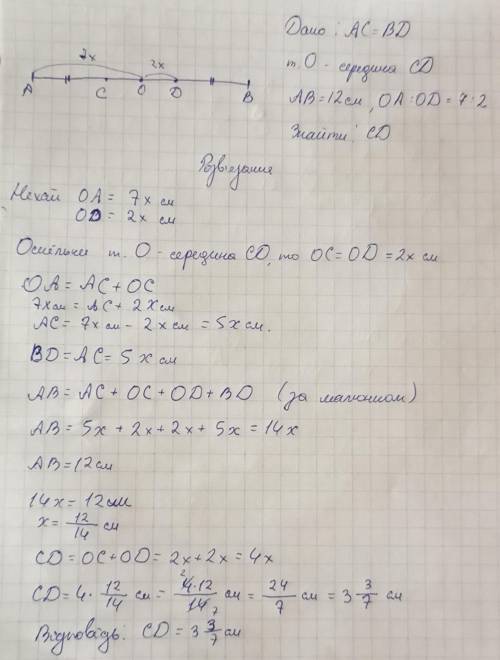 Дано: AC = BD
т. О - середина CD
AB = 12 см, OA : OD = 7 : 2
Знайти: CD
7x 2x
A C O D B
Розв'язання
Нехай OA = 7x см
OD = 2x см
Оскільки т. О - середина CD, то OC = OD = 2x см
OA = AC + OC
7x см = AC + 2x см
AC = 7x см - 2x см = 5x см.
BD = AC = 5x см
AB = AC + OC + OD + BD (за малюнком)
AB = 5x + 2x + 2x + 5x = 14x
AB = 12 см
14x = 12 см
x = 12/14 см
CD = OC + OD = 2x + 2x = 4x
CD = 4 · 12/14 см = 4·12/14 см = 24/7 см = 3 3/7 см
Відповідь: CD = 3 3/7 см